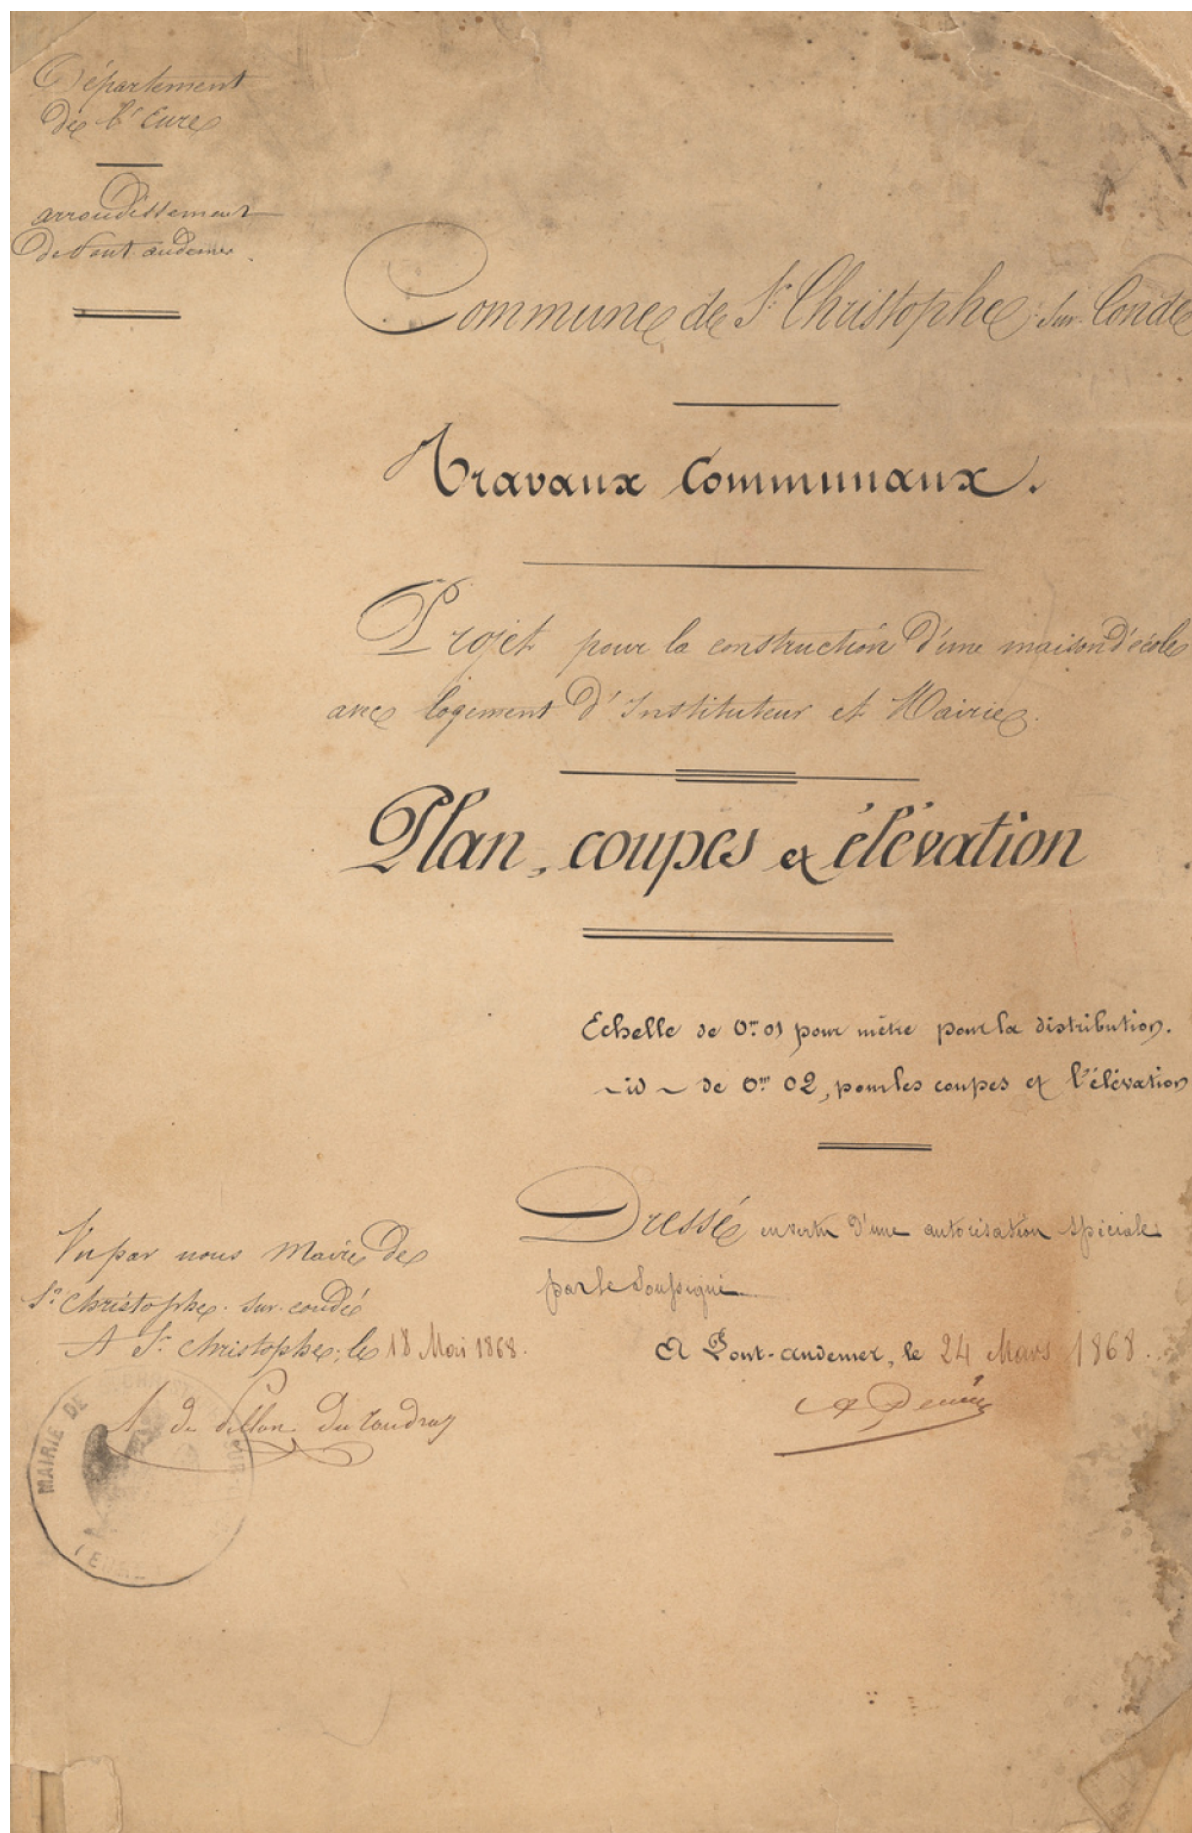 Département
de l'Eure
arrondissement
de Pont audemer
Commune de St Christophe sur Condé
Travaux Communaux.
Projet pour la construction d'une maison d'école
avec logement d'Instituteur et Mairie.
Plan, coupes et élévation
Echelle de 0m 01 pour mètre pour la distribution.
- id - de 0m 02, pour les coupes et l'élévation
Dressé en vertu d'une autorisation spéciale
par le soussigné
A Pont-audemer, le 24 Mars 1868.
Vu par nous Maire de
St Christophe sur condé
A St Christophe, le 18 Mai 1868.
MAIRIE DE